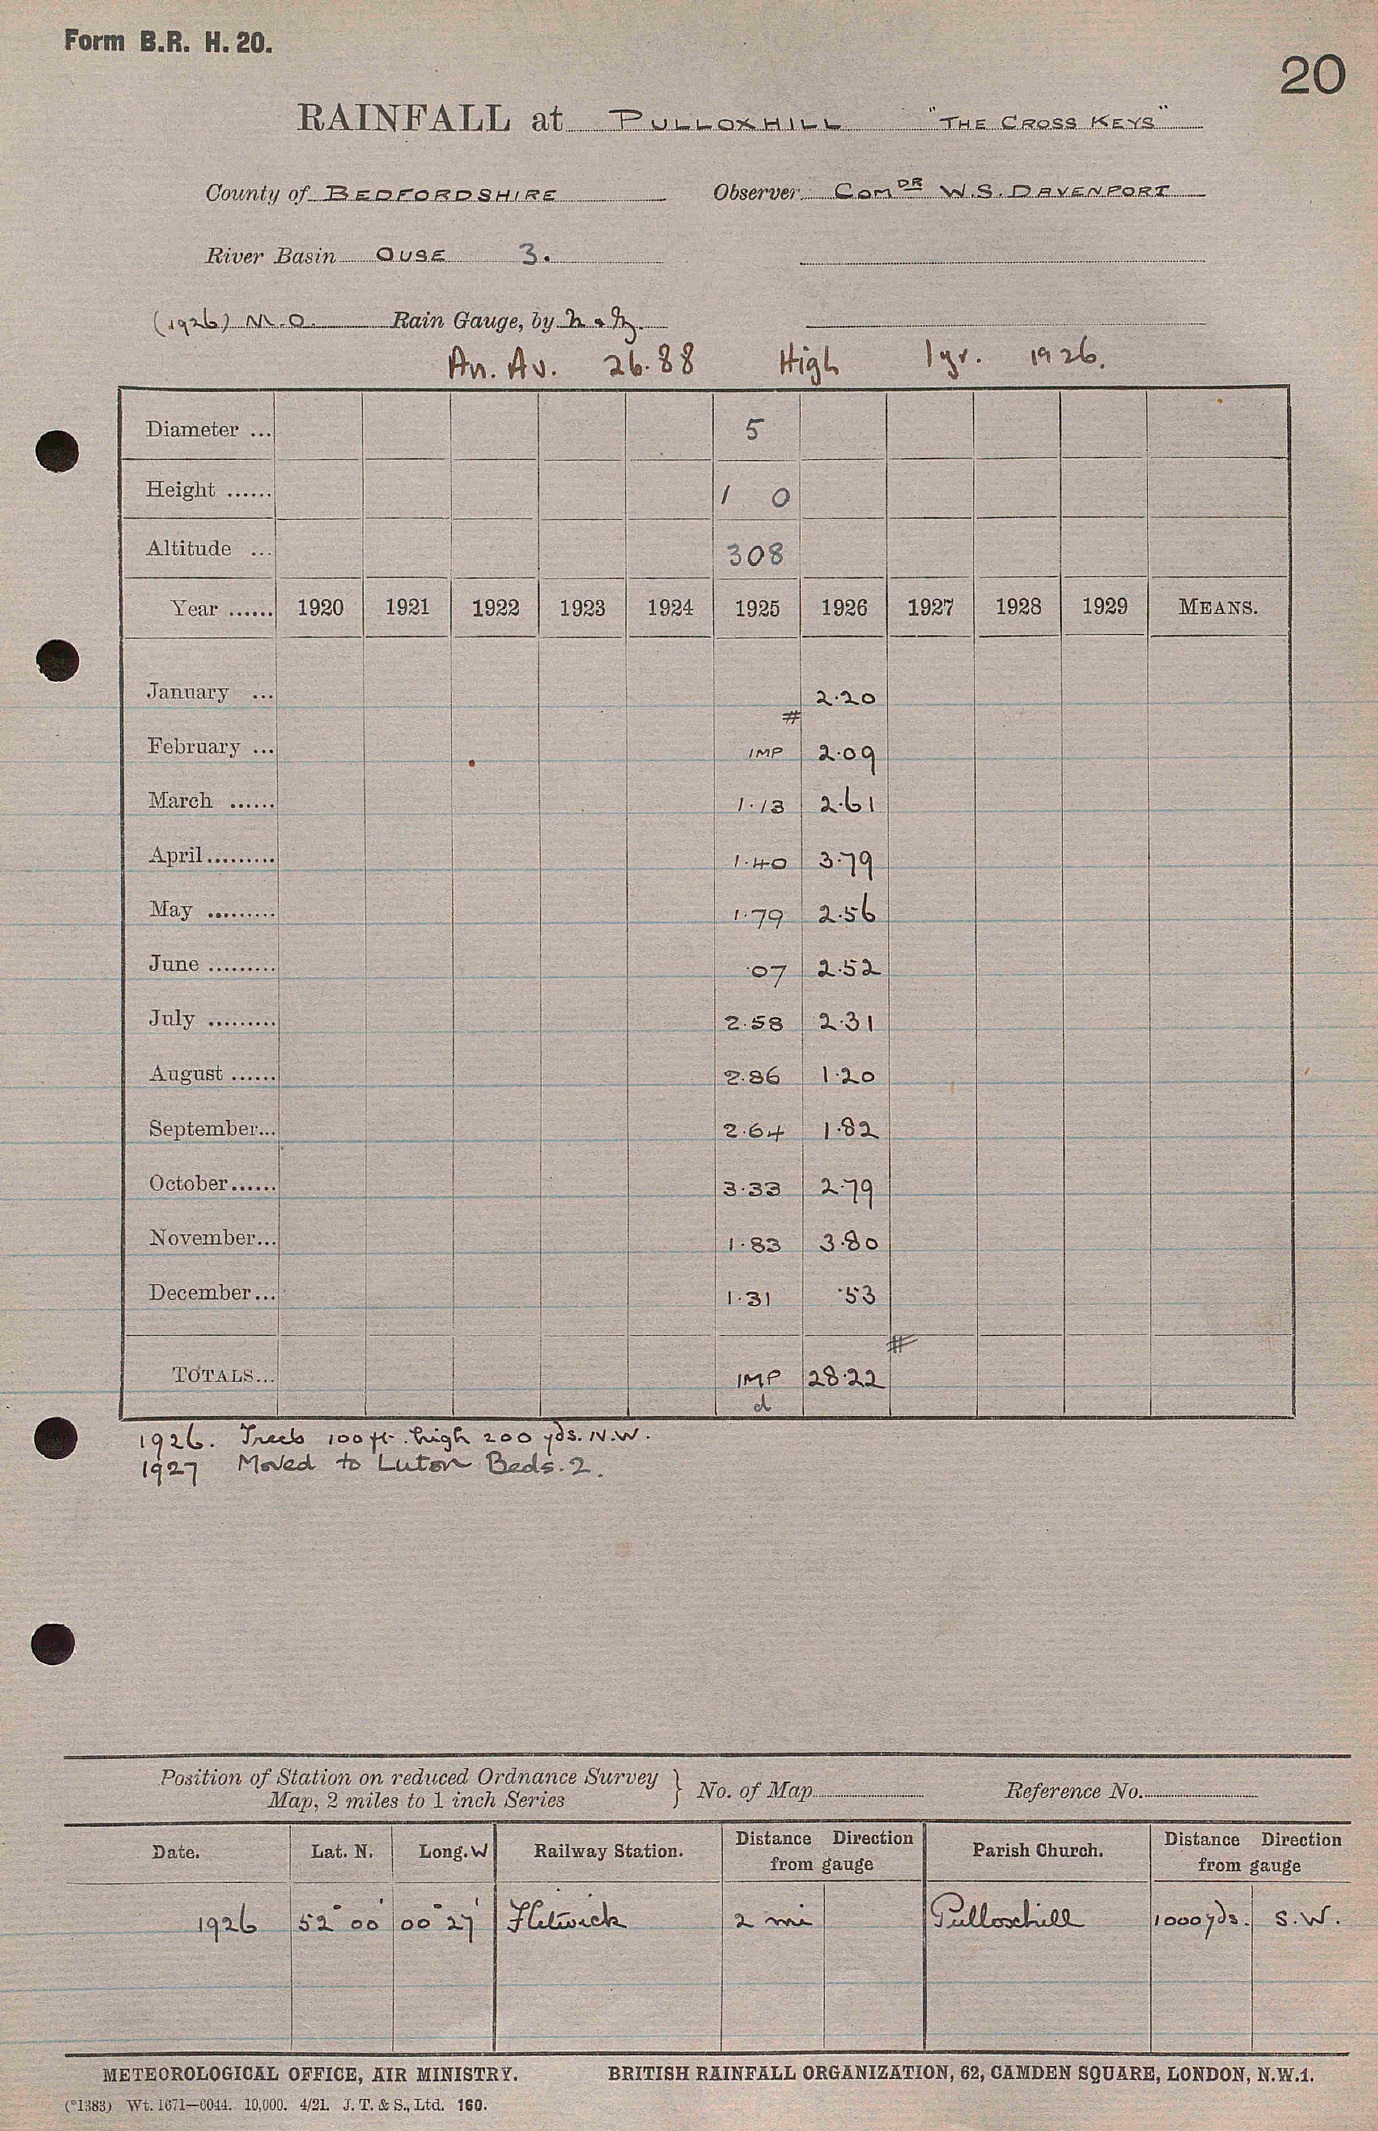 Form B.R. H. 20.
20
RAINFALL at PULLOXHILL "THE CROSS KEYS"
County of BEDFORDSHIRE Observer COMDR W.S. DAVENPORT
River Basin OUSE 3.
(1926) M.O. Rain Gauge, by
An. Av. 26.88 High 1 yr. 1926.
Diameter ... 5
Height ...... 1 0
Altitude ... 308
Year ...... 1920 1921 1922 1923 1924 1925 1926 1927 1928 1929 MEANS.
January ... 2.20
#
February ... IMP 2.09
March ...... 1.13 2.61
April ......... 1.40 3.79
May ......... 1.79 2.56
June ......... .07 2.52
July ......... 2.58 2.31
August ...... 2.86 1.20
September... 2.64 1.82
October ...... 3.33 2.79
November... 1.83 3.80
December... 1.31 .53
#
TOTALS... IMP 28.22
d
1926. Trees 100 ft. high 200 yds. N.W.
1927 Moved to Luton Beds. 2.
Position of Station on reduced Ordnance Survey
Map, 2 miles to 1 inch Series } No. of Map Reference No.
Date. Lat. N. Long. W Railway Station. Distance Direction from gauge Parish Church. Distance Direction from gauge
1926 52° 00' 00° 27' Flitwick 2 mi Pulloxhill 1000 yds. S.W.
METEOROLOGICAL OFFICE, AIR MINISTRY. BRITISH RAINFALL ORGANIZATION, 62, CAMDEN SQUARE, LONDON, N.W.1.
(*1383) Wt. 1671—6044. 10,000. 4/21. J. T. & S., Ltd. 160.